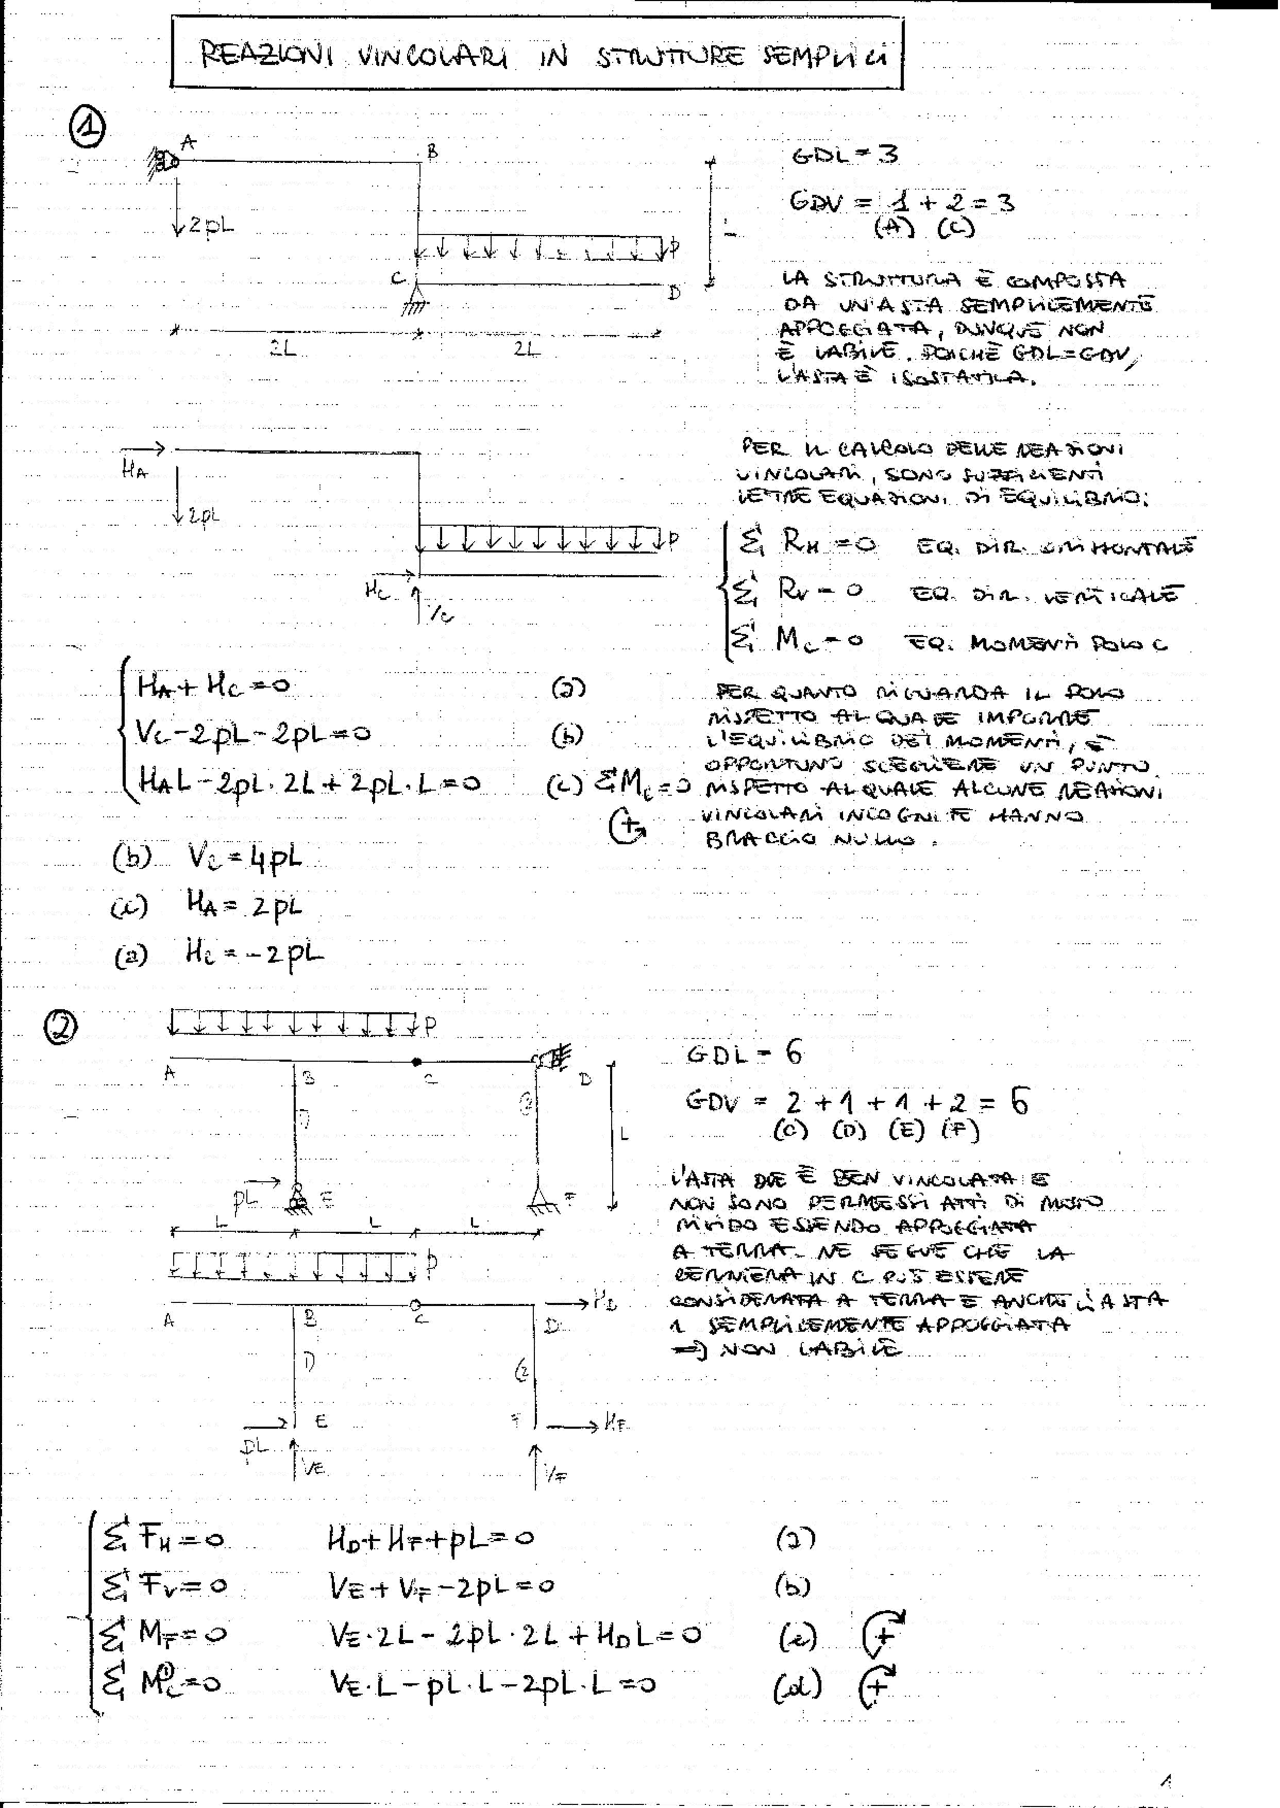 REAZIONI VINCOLARI IN STRUTTURE SEMPLICI
1
A
B
2pL
P
C
D
L
2L
2L
GDL = 3
GDV = 1 + 2 = 3
(A) (C)
LA STRUTTURA È COMPOSTA
DA UN'ASTA SEMPLICEMENTE
APPOGGIATA, DUNQUE NON
È LABILE. POICHÈ GDL=GDV,
L'ASTA È ISOSTATICA.
HA
2pL
P
HC
VC
PER IL CALCOLO DELLE REAZIONI
VINCOLARI, SONO SUFFICIENTI
LE TRE EQUAZIONI DI EQUILIBRIO:
Σ RH = 0 EQ. DIR. ORIZZONTALE
Σ RV = 0 EQ. DIR. VERTICALE
Σ MC = 0 EQ. MOMENTI POLO C
HA + HC = 0 (a)
VC - 2pL - 2pL = 0 (b)
HA L - 2pL · 2L + 2pL · L = 0 (c) ΣMC = 0
+
PER QUANTO RIGUARDA IL POLO
RISPETTO AL QUALE IMPORRE
L'EQUILIBRIO DEI MOMENTI, È
OPPORTUNO SCEGLIERE UN PUNTO
RISPETTO AL QUALE ALCUNE REAZIONI
VINCOLARI INCOGNITE HANNO
BRACCIO NULLO.
(b) VC = 4pL
(c) HA = 2pL
(a) HC = -2pL
2
P
A
B
C
D
1
2
L
pL
E
F
L
L
L
GDL = 6
GDV = 2 + 1 + 1 + 2 = 6
(C) (D) (E) (F)
L'ASTA DUE È BEN VINCOLATA E
NON SONO PERMESSI ATTI DI MOTO
RIGIDO ESSENDO APPOGGIATA
A TERRA. NE SEGUE CHE LA
CERNIERA IN C PUÒ ESSERE
CONSIDERATA A TERRA E ANCHE L'ASTA
1 SEMPLICEMENTE APPOGGIATA
=> NON LABILE
P
A
B
C
D
HD
1
2
E
F
HF
pL
VE
VF
Σ FH = 0 HD + HF + pL = 0 (a)
Σ FV = 0 VE + VF - 2pL = 0 (b)
Σ MF = 0 VE · 2L - 2pL · 2L + HD L = 0 (c) +
Σ MC① = 0 VE · L - pL · L - 2pL · L = 0 (d) +
1